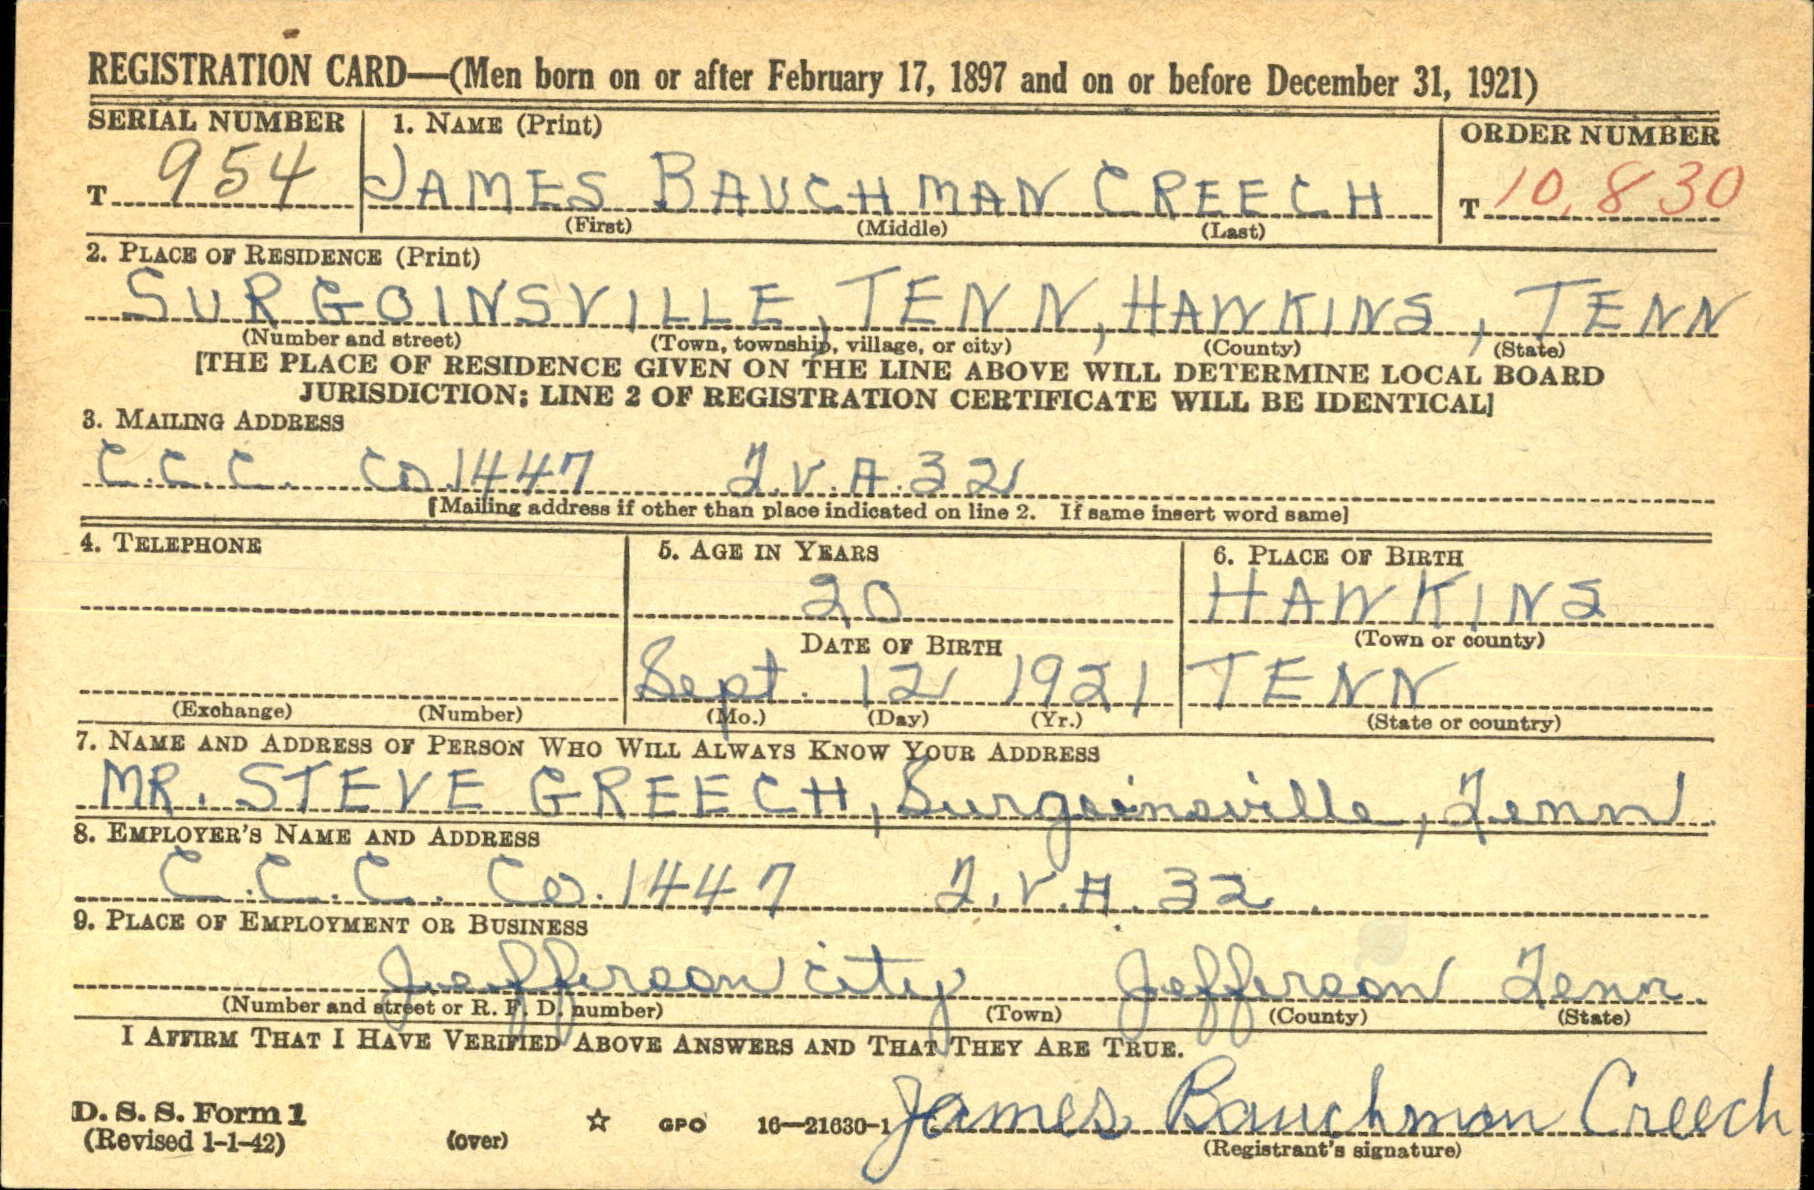 REGISTRATION CARD—(Men born on or after February 17, 1897 and on or before December 31, 1921)
SERIAL NUMBER 1. NAME (Print) ORDER NUMBER
T 954 JAMES BAUCHMAN CREECH T 10,830
(First) (Middle) (Last)
2. PLACE OF RESIDENCE (Print)
SURGOINSVILLE, TENN, HAWKINS, TENN
(Number and street) (Town, township, village, or city) (County) (State)
[THE PLACE OF RESIDENCE GIVEN ON THE LINE ABOVE WILL DETERMINE LOCAL BOARD
JURISDICTION; LINE 2 OF REGISTRATION CERTIFICATE WILL BE IDENTICAL]
3. MAILING ADDRESS
C.C.C. Co. 1447 T.V.A. 32
[Mailing address if other than place indicated on line 2. If same insert word same]
4. TELEPHONE 5. AGE IN YEARS 6. PLACE OF BIRTH
20 HAWKINS
DATE OF BIRTH (Town or county)
Sept. 12 1921 TENN
(Exchange) (Number) (Mo.) (Day) (Yr.) (State or country)
7. NAME AND ADDRESS OF PERSON WHO WILL ALWAYS KNOW YOUR ADDRESS
MR. STEVE GREECH, Surgoinsville, Tenn.
8. EMPLOYER'S NAME AND ADDRESS
C.C.C. Co. 1447 T.V.A. 32.
9. PLACE OF EMPLOYMENT OR BUSINESS
Jefferson City Jefferson Tenn.
(Number and street or R. F. D. number) (Town) (County) (State)
I AFFIRM THAT I HAVE VERIFIED ABOVE ANSWERS AND THAT THEY ARE TRUE.
D. S. S. Form 1
(Revised 1-1-42) (over) ☆ GPO 16—21630-1 James Bauchman Creech
(Registrant's signature)